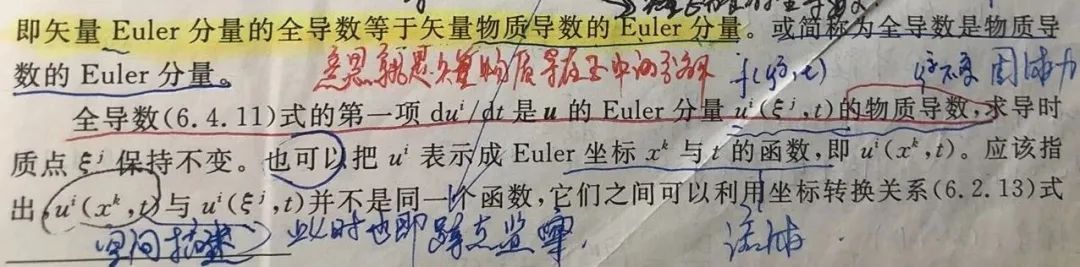 即矢量 Euler 分量的全导数等于矢量物质导数的 Euler 分量。或简称为全导数是物质导
数的 Euler 分量。
意思就是矢量物质导在 f(ξʲ,t) ξʲ不变 固体力
全导数(6.4.11)式的第一项 duⁱ/dt 是 u 的 Euler 分量 uⁱ(ξʲ,t)的物质导数,求导时
质点 ξʲ 保持不变。也可以把 uⁱ 表示成 Euler 坐标 xᵏ 与 t 的函数,即 uⁱ(xᵏ,t)。应该指
出,uⁱ(xᵏ,t)与 uⁱ(ξʲ,t)并不是同一个函数,它们之间可以利用坐标转换关系(6.2.13)式
空间 此时也即 流体